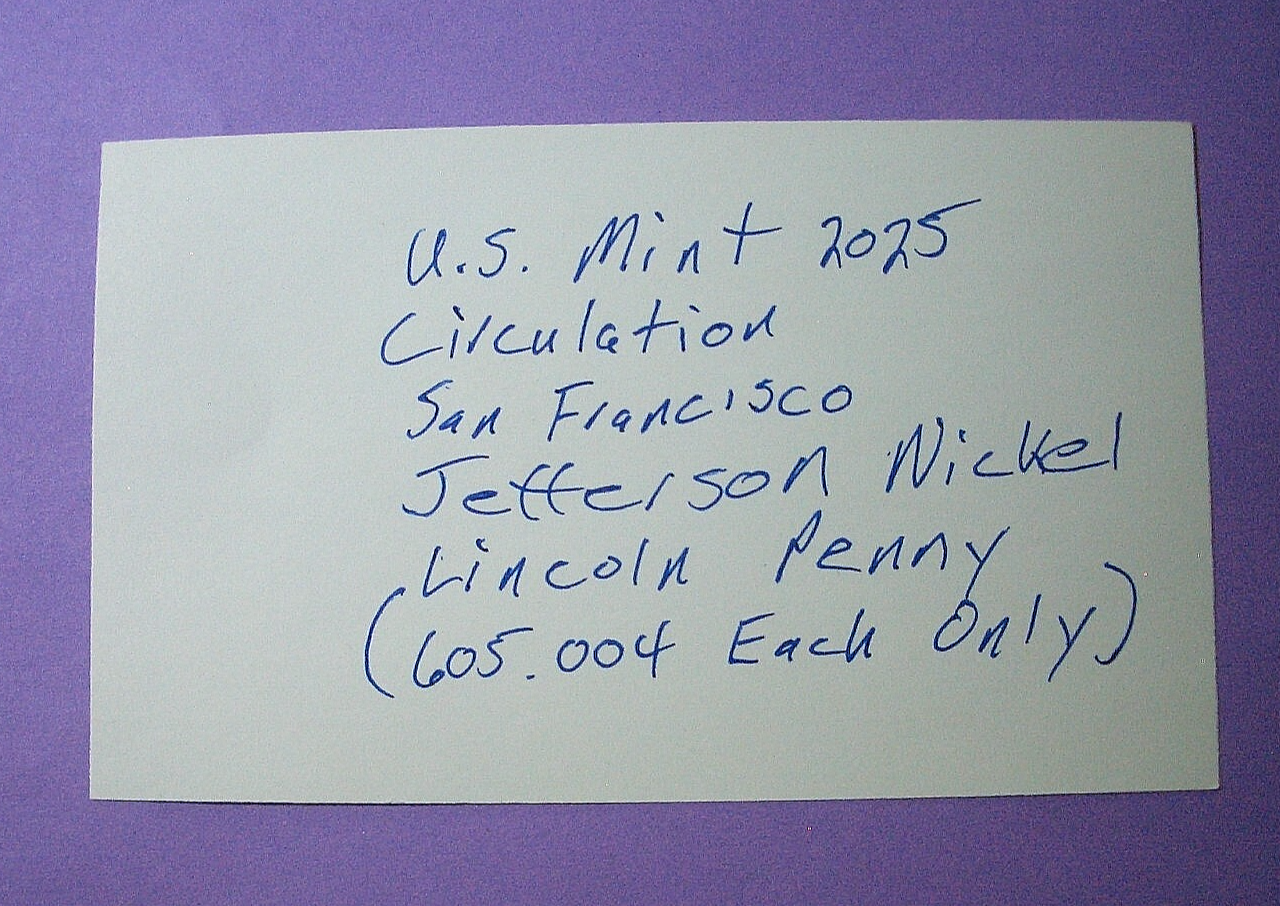 U.S. Mint 2025
Circulation
San Francisco
Jefferson Nickel
Lincoln Penny
(605.004 Each Only)